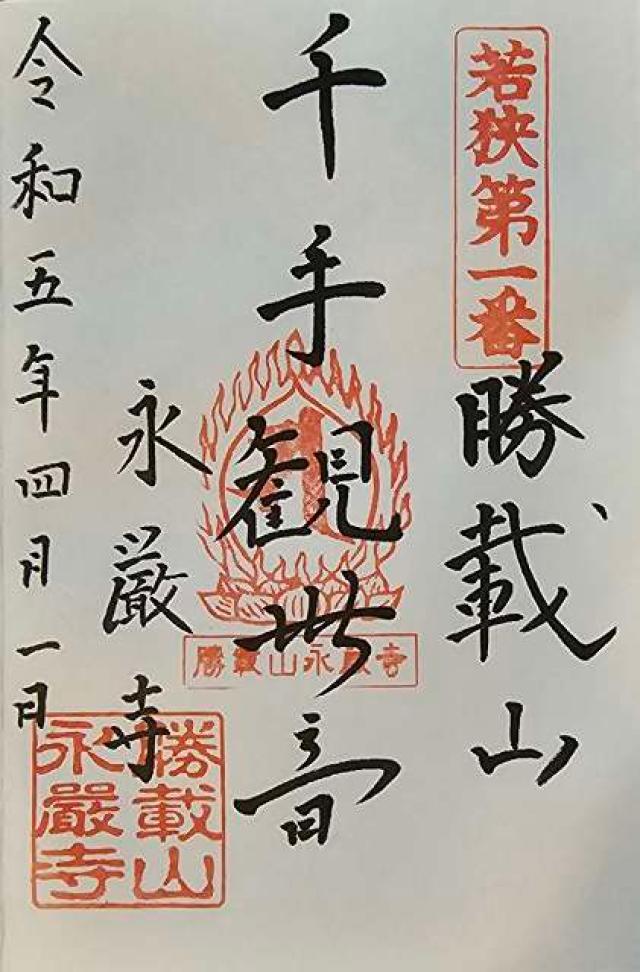 若狭第一番
勝載山
千手観世音
勝載山永厳寺
永厳寺
勝載山
永嚴寺
令和五年四月一日